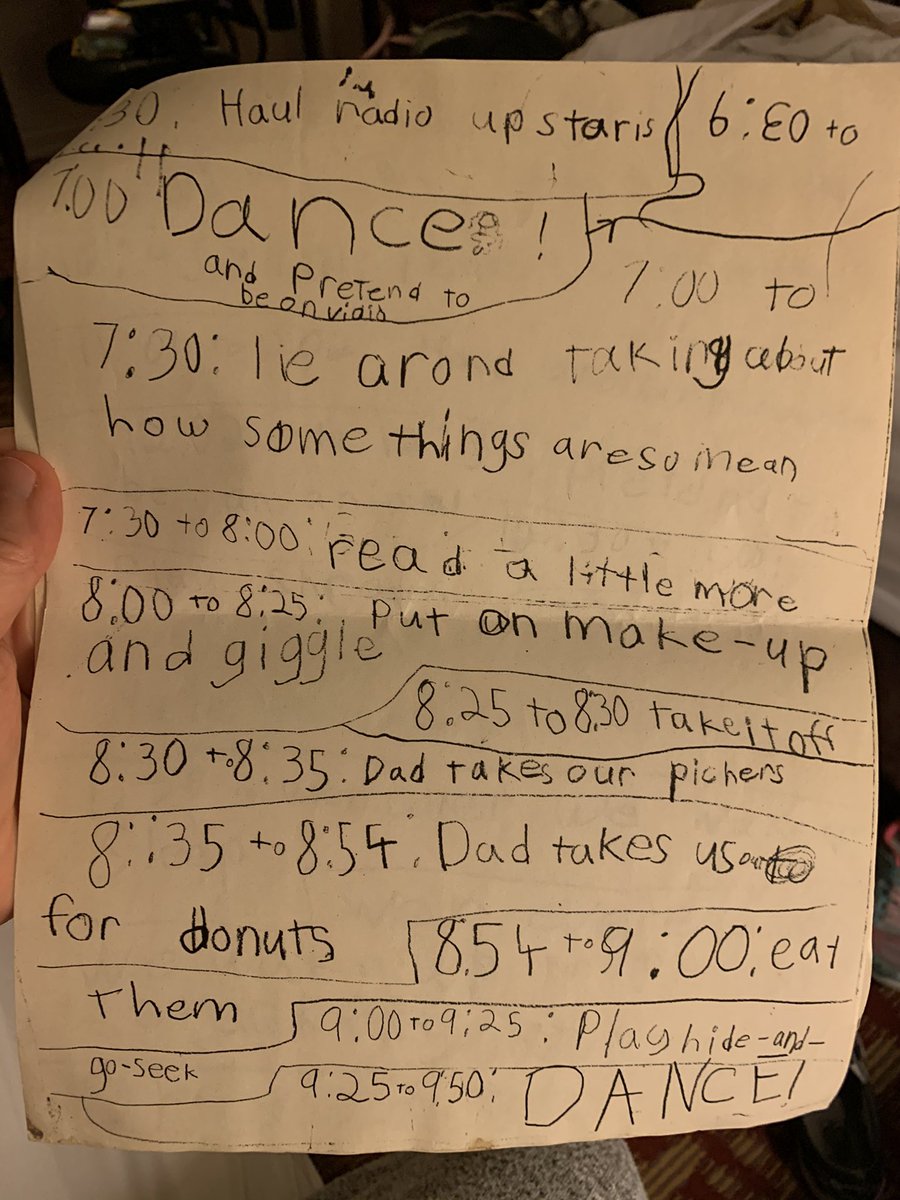 :30. Haul radio upstaris
6:30 to
7:00 Dance !
and Pretend to
be on vidio
7:00 to
7:30: lie arond taking about
how some things are so mean
7:30 to 8:00: read a little more
8:00 to 8:25: put on make-up
and giggle
8:25 to 8:30 take it off
8:30 to 8:35: Dad takes our pichers
8:35 to 8:54: Dad takes us out
for donuts
8:54 to 9:00: eat
Them
9:00 to 9:25: Play hide-and-
go-seek
9:25 to 9:50: DANCE!